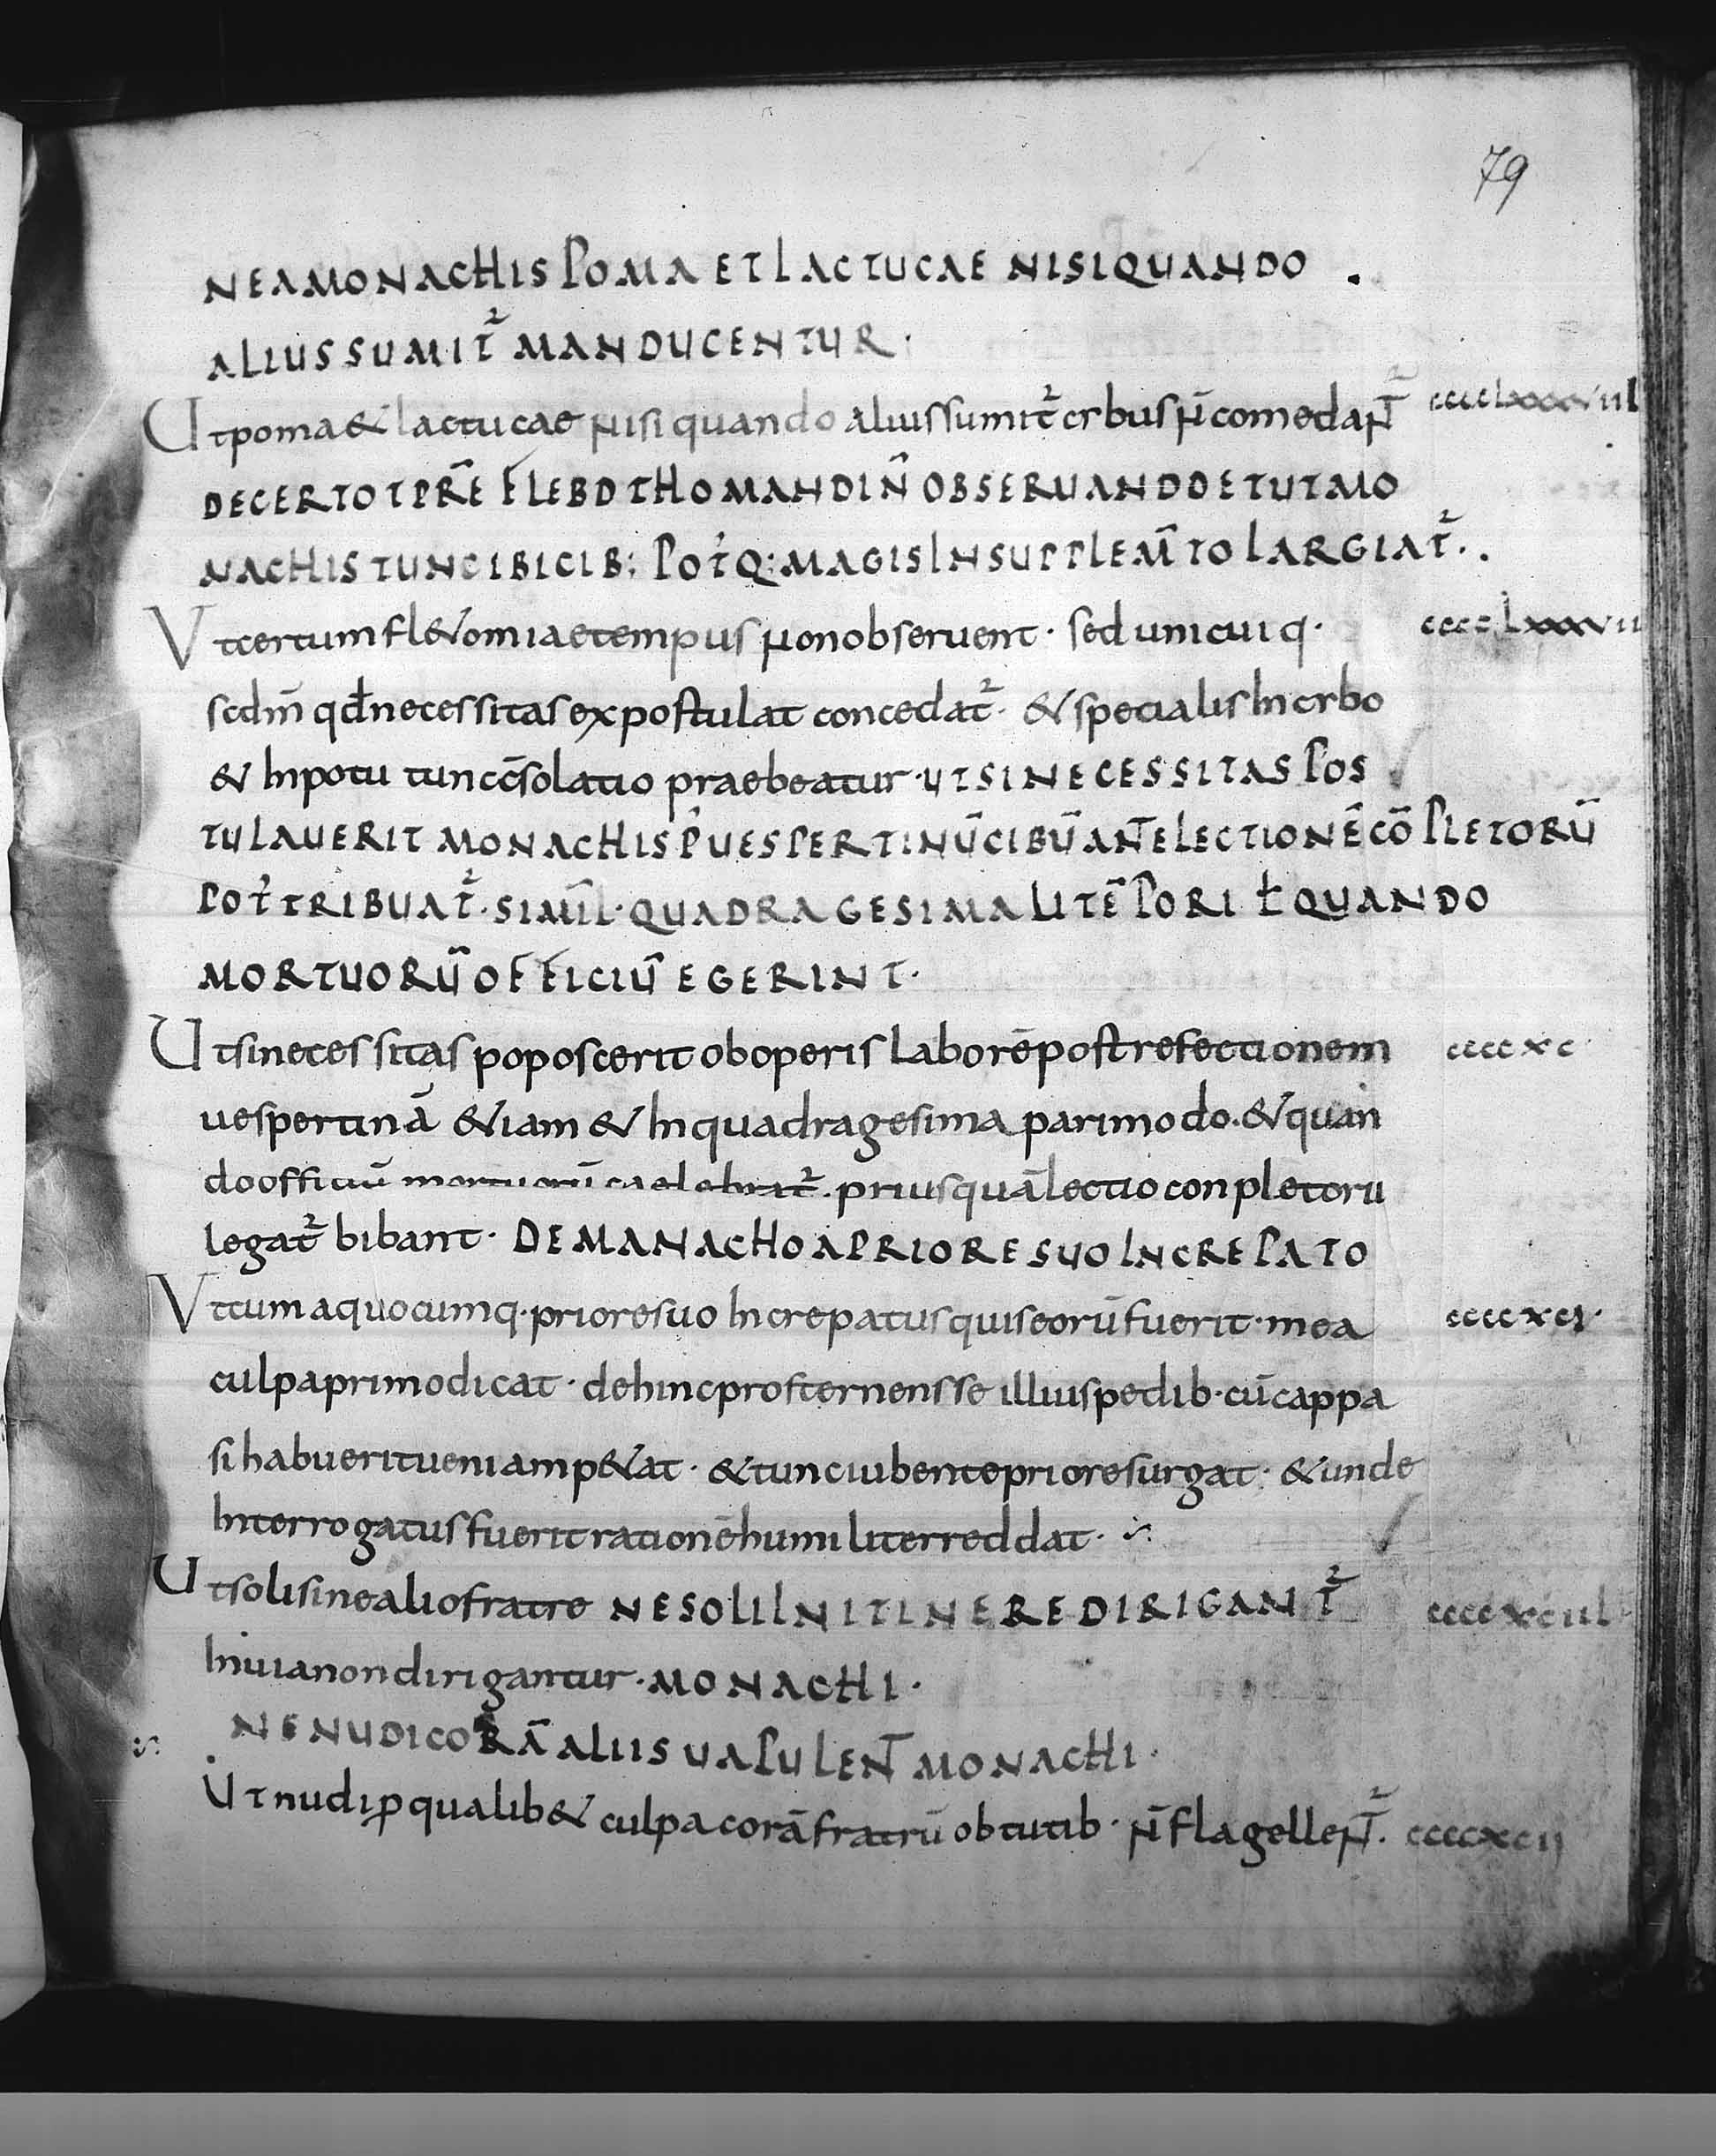 79
NE A MONACHIS POMA ET LACTUCAE NISI QUANDO .
ALIUS SUMIT᷑ MANDUCENTUR ·
Ut poma & lactucae nisi quando alius sumit᷑ cybus n̄ comedaNT᷑ cccclxxxviii
DE CERTO TP̄RE FLEBOTHOMANDI N̄ OBSERUANDO ET UT MO
NACHIS TUNC IBI CIB; POTQ: MAGIS IN SUPPLEM̄TO LARGIAT᷑ · .
Ut certum fl&omiae tempus non obseruent · sed unicuiq · cccclxxxvii
scdm̄ qđ necessitas expostulat concedat᷑ · & specialis In cybo
& In potu tunc c̄solatio praebeatur · UT SI NECESSITAS POS
TULAUERIT MONACHIS P̄ UESPERTINŪ CIBŪ ANT̄ E LECTIONĒ CŌPLETORŪ
POT᷑ TRIBUAT᷑ · SIMIL̄ · QUADRAGESIMALI TĒPORI Ł QUANDO
MORTUORŪ OFFICIŪ EGERINT ·
Ut si necessitas poposcerit ob operis laborē post refectionem ccccxc ·
uespertinā &iam & In quadragesima pari modo · & quan
do officiū mortuorū caelebrat᷑ · priusquā lectio conpletorii
legat᷑ bibant · DE MANACHO A PRIORE SUO INCREPATO
Ut cum a quocumq · priore suo Increpatus quis eorū fuerit · mea ccccxci ·
culpa primo dicat · dehinc prosternens se illius pedib · cū cappa
si habuerit ueniam p&at · & tunc iubente priore surgat · & unde
Interrogatus fuerit rationē humiliter reddat ·
Ut soli sine alio fratre NE SOLI IN ITINERE DIRIGANT᷑ ccccxciii
In uia non dirigantur · MONACHI ·
NE NUDI CORĀ ALIIS UAPULENT̄ MONACHI ·
Ut nudi p qualib& culpa corā fratrū obtutib · n̄ flagelleNT᷑ · ccccxcii